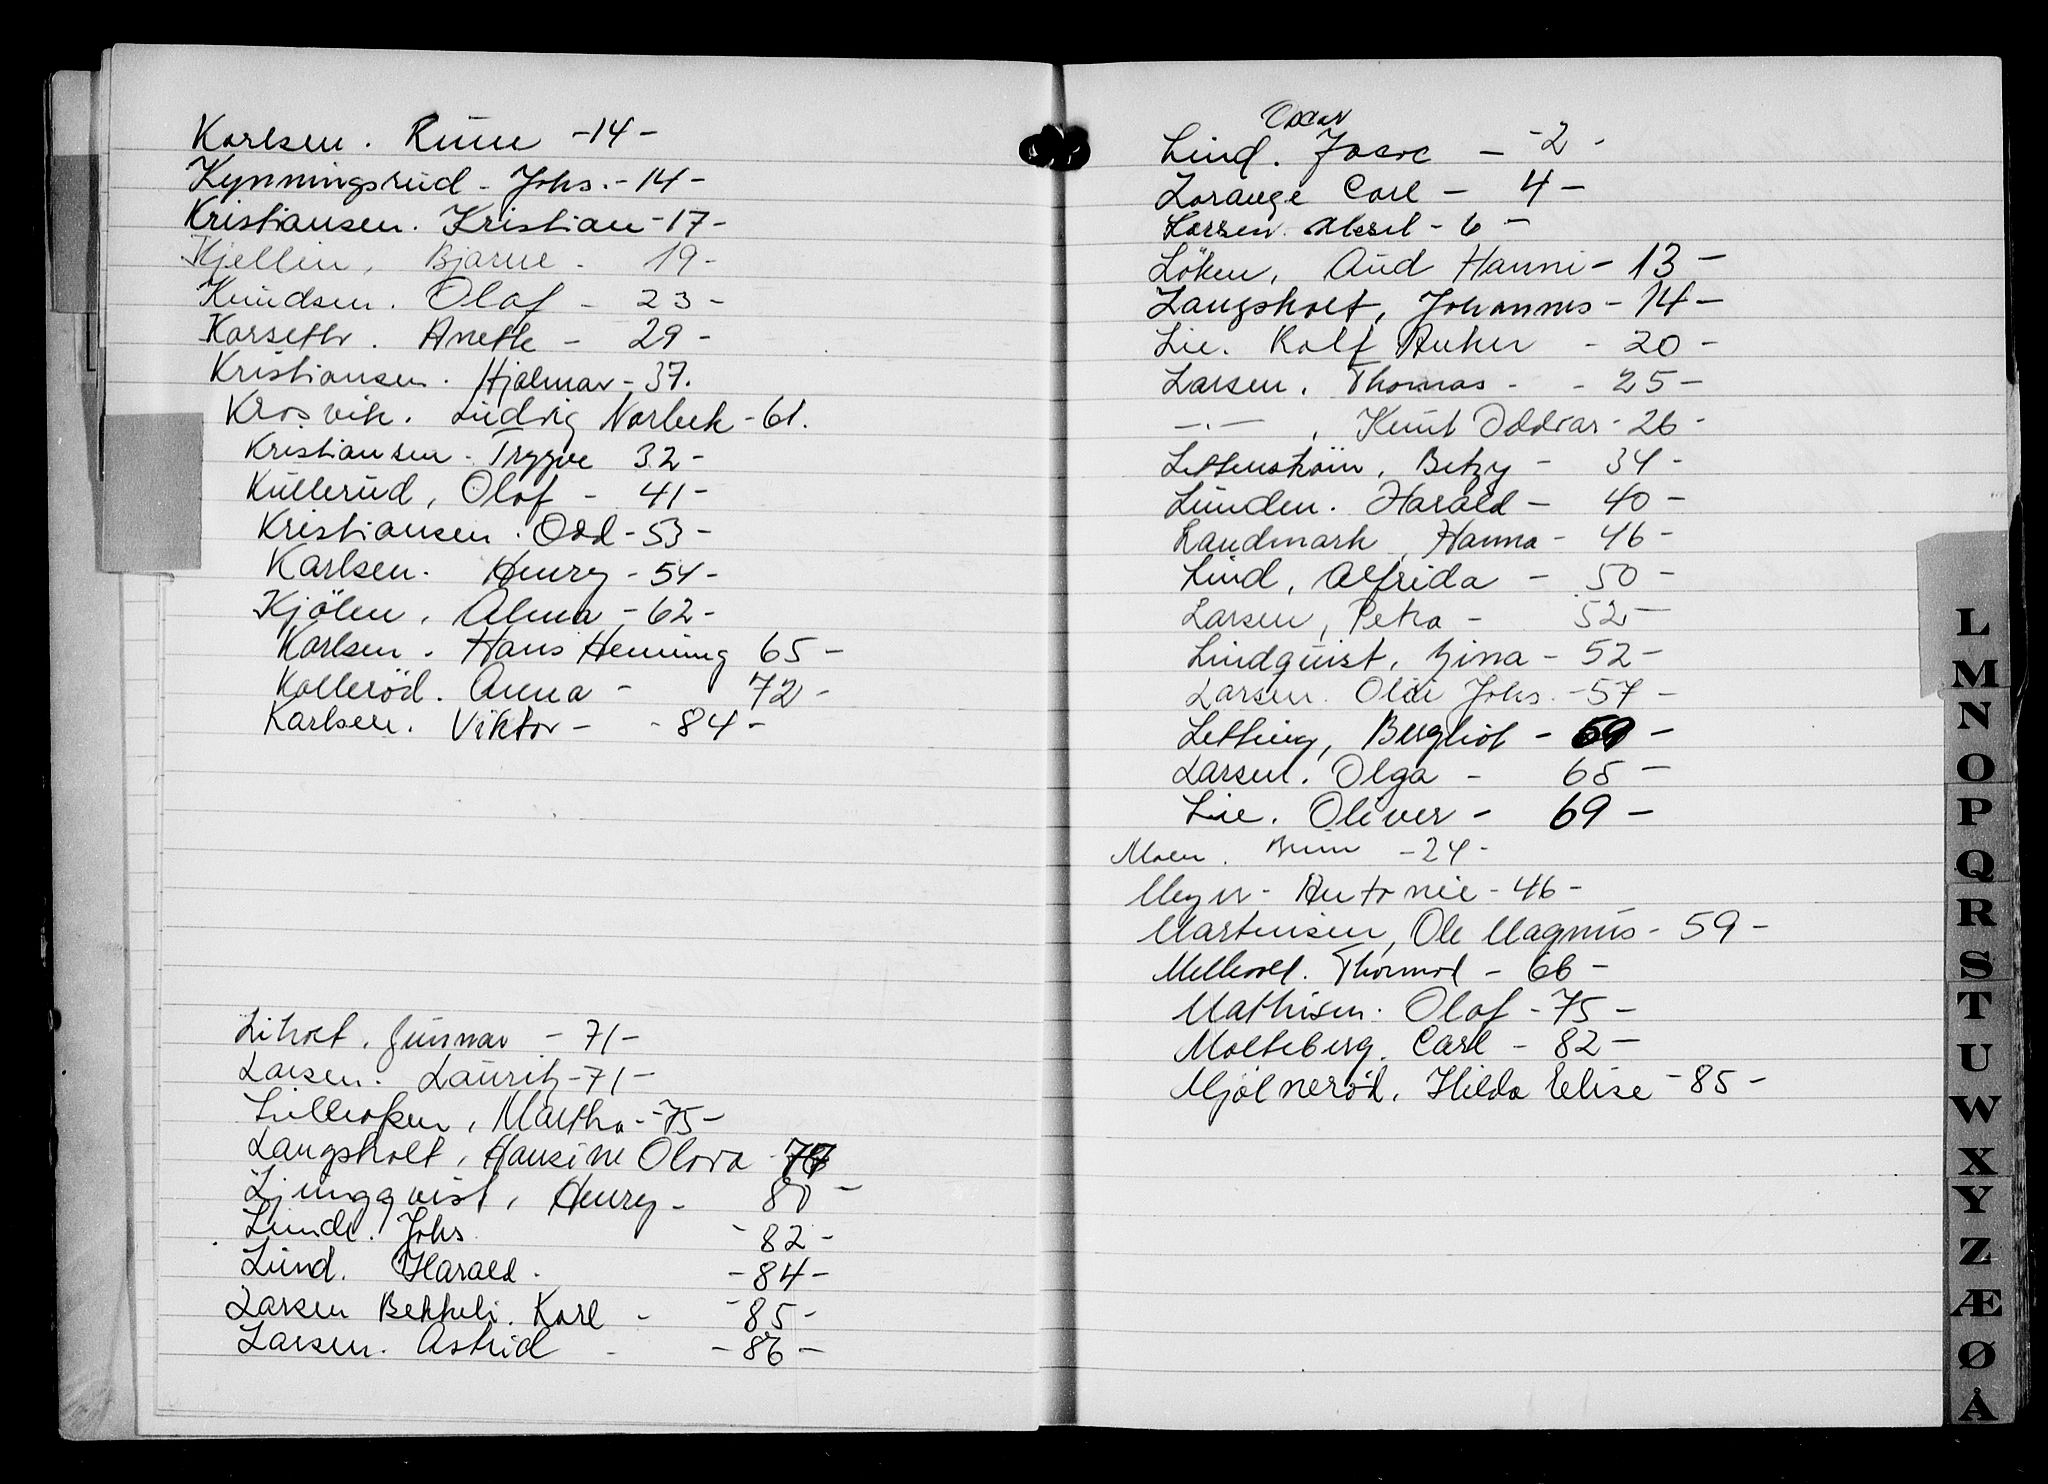 Karlsen. Rune -14-
Kynningsrud - Johs. - 14 -
Kristiansen. Kristian - 17 -
Kjellin, Bjarne - 19 -
Knudsen. Olaf - 23 -
Korseth. Anette - 29 -
Kristiansen. Hjalmar - 37.
Krosvik. Ludvig Norbech - 61.
Kristiansen - Trygve 32 -
Kullerud, Olaf - 41 -
Kristiansen. Odd - 53 -
Karlsen. Henry - 54 -
Kjölen, Alma - 62 -
Karlsen. Hans Henning 65 -
Kolleröd. Anna - 72 -
Karlsen. Viktor - - 84 -
Liholt. Gunnar - 71 -
Larsen. Lauritz - 71 -
Martha - 75 -
Langsholt, Hansine Olava
Ljungqvist, Henry - 80 -
Linde. Johs - 82 -
Lund. Harald. - 84 -
Larsen Bekkeli. Karl - - 85 -
Larsen. Astrid - - 86 -
Oscar
Lind. - - 2 -
Lorange Carl - 4 -
Larsen. Aksel - 6 -
Löken, Aud Hanni - 13 -
Langsholt, Johannes - 14 -
Lie. Rolf Anker - 20 -
Larsen. Thomas - - 25 -
-.- , Knut Oddvar - 26 -
Betzy - 34 -
Lunden. Harald - 40 -
Landmark, Hanna - 46 -
Lind, Alfrida - 50 -
Larsen, Petra - 52 -
Lindquist, Gina - 52 -
Larsen. Olai Johs. - 57 -
Letting, Bergliot - 59 -
Larsen. Olga - 65 -
Lie. Oliver - 69 -
Moen. - 24 -
Meyer - Antonie - 46 -
Martinsen, Ole Magnus - 59 -
Mellevold. Thormod - 66 -
Mathisen. Olaf - 75 -
Molteberg. Carl - 82 -
Mjölneröd, Hilda Elise - 85 -
L
M
N
O
P
Q
R
S
T
U
W
X
Y
Z
Æ
Ø
Å